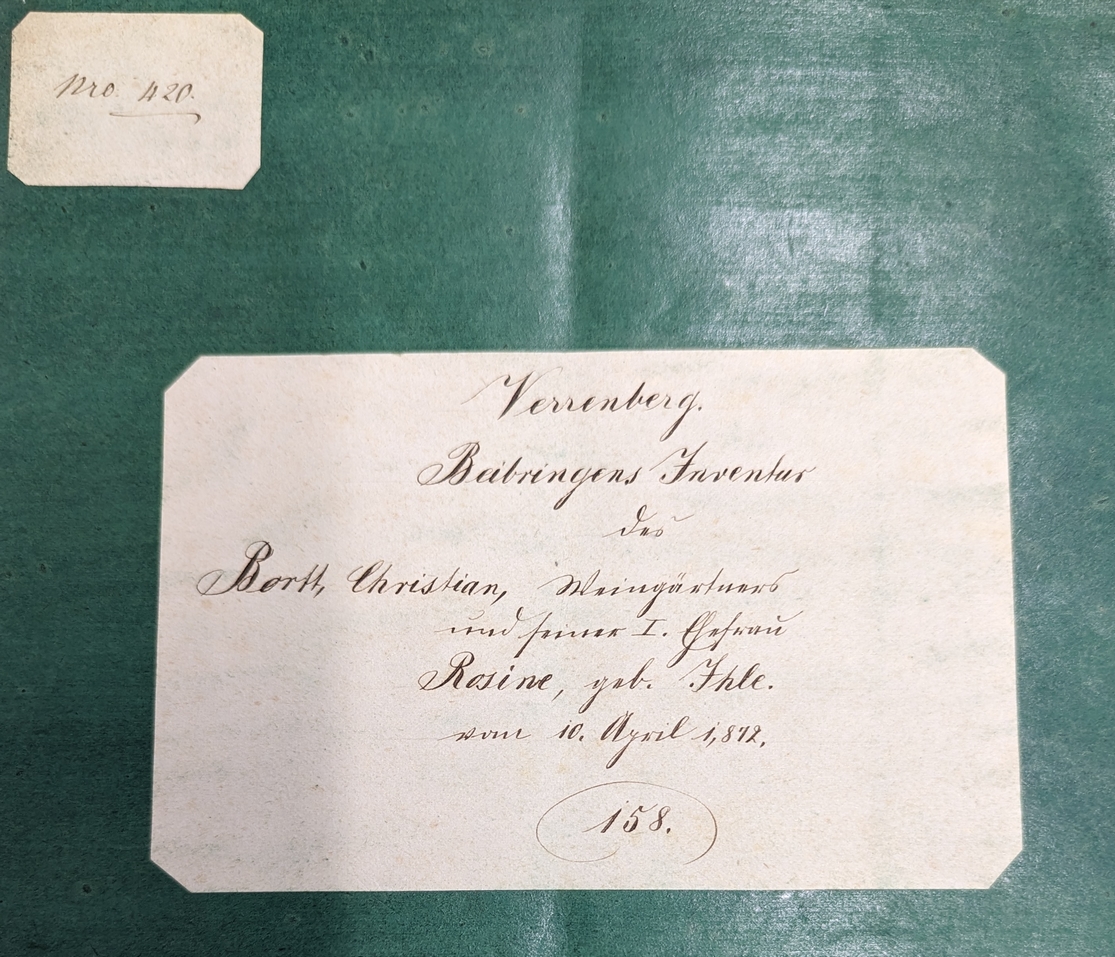 Nro. 420.
Verrenberg.
Beibringens Inventur
des
Bortt, Christian, Weingärtners
und seiner I. Ehefrau
Rosine, geb. Ihle.
vom 10. April 1,872.
158.